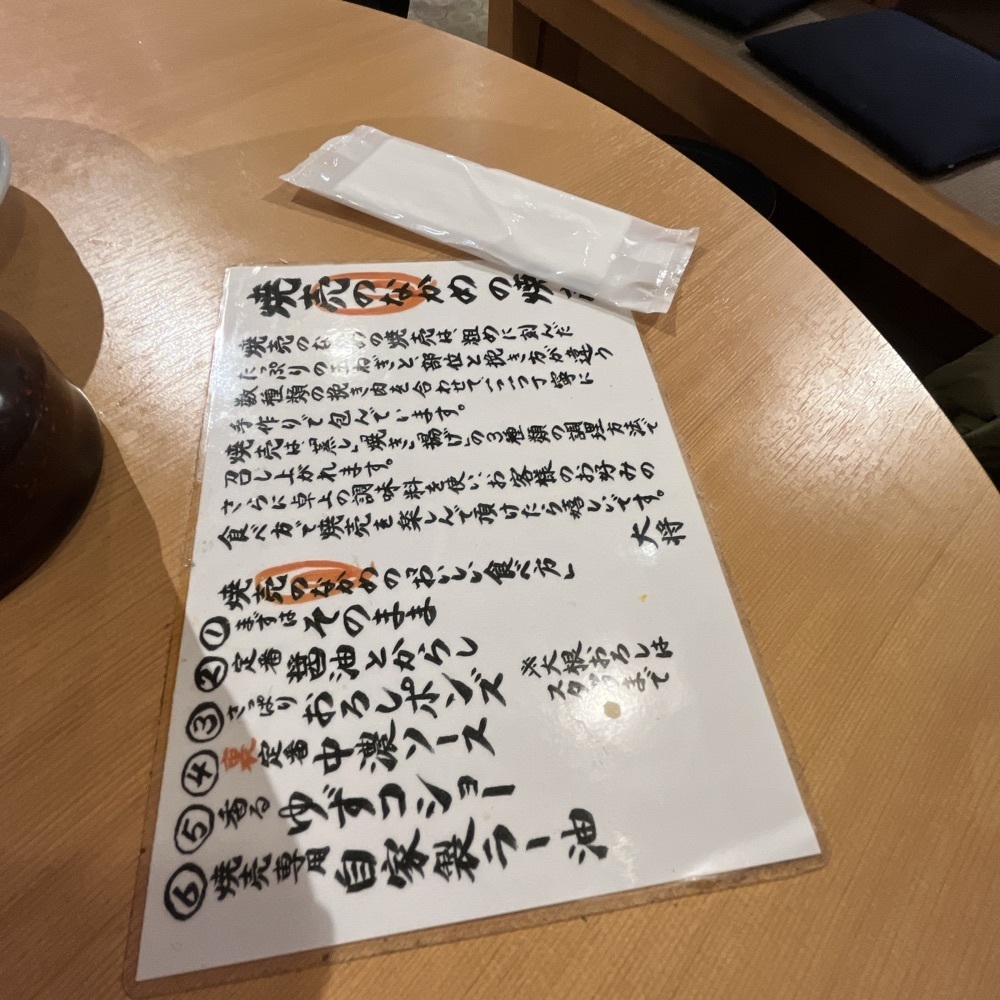 焼売のなかめの焼
焼売のなかめの焼売は、粗めに刻んだ
たっぷりの玉ねぎと、部位と挽き方が違う
数種類の挽き肉を合わせて、一つ一つ丁寧に
手作りで包んでいます。
焼売は、蒸し、焼き、揚げ、の3種類の調理方法で
召し上がれます。
さらに卓上の調味料を使い、お客様のお好みの
食べ方で焼売を楽しんで頂けたら嬉しいです。
大将
焼売のなかめの「おいしい食べ方」
① まずは そのまま
② 定番 醤油とからし
③ さっぱり おろしポンズ
※大根おろしは
スタッフまで
④ 裏定番 中濃ソース
⑤ 香る ゆずコショー
⑥ 焼売専用 自家製ラー油